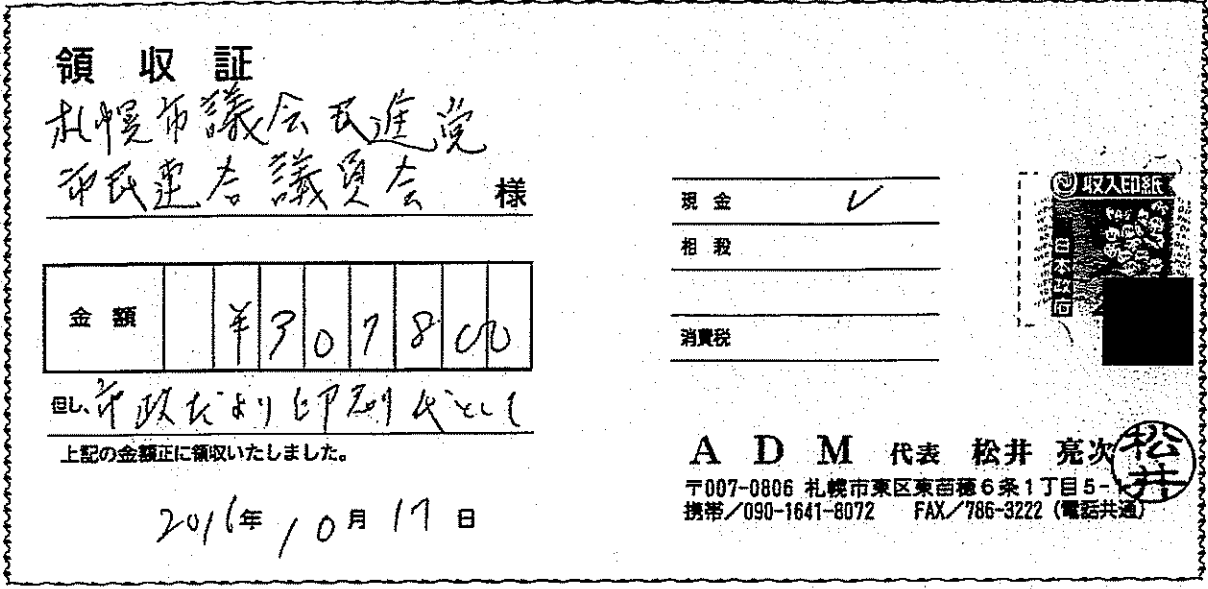 領収証
札幌市議会民進党
市民連合議員会 様
金額 ¥307800
但し、市政だより印刷代として
上記の金額正に領収いたしました。
2016年10月17日
現金 ✓
相殺
消費税
収入印紙
日本政府
ADM 代表 松井 亮次
松井
〒007-0806 札幌市東区東苗穂6条1丁目5-
携帯／090-1641-8072 FAX／786-3222（電話共通）